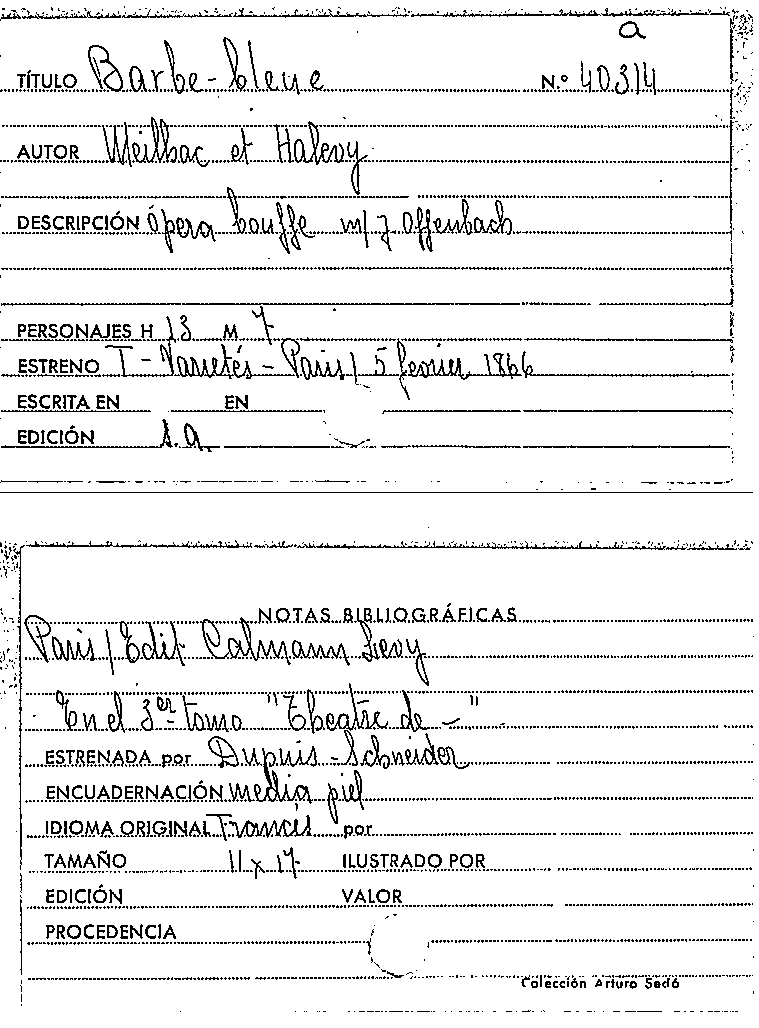 a
TÍTULO Barbe-bleue N.º 40314
AUTOR Meilhac et Halevy
DESCRIPCIÓN Ópera bouffe m/ J Offenbach
PERSONAJES H 13 M 7
ESTRENO T-Varietés-Paris/ 5 fevrier 1866
ESCRITA EN EN
EDICIÓN s.a.
NOTAS BIBLIOGRÁFICAS
Paris/Edit. Calmann Levy
En el 3er tomo "Theatre de -"
ESTRENADA por Dupuis-Schneider
ENCUADERNACIÓN media piel
IDIOMA ORIGINAL Francés por
TAMAÑO 11 x 17 ILUSTRADO POR
EDICIÓN VALOR
PROCEDENCIA
Colección Arturo Sedó